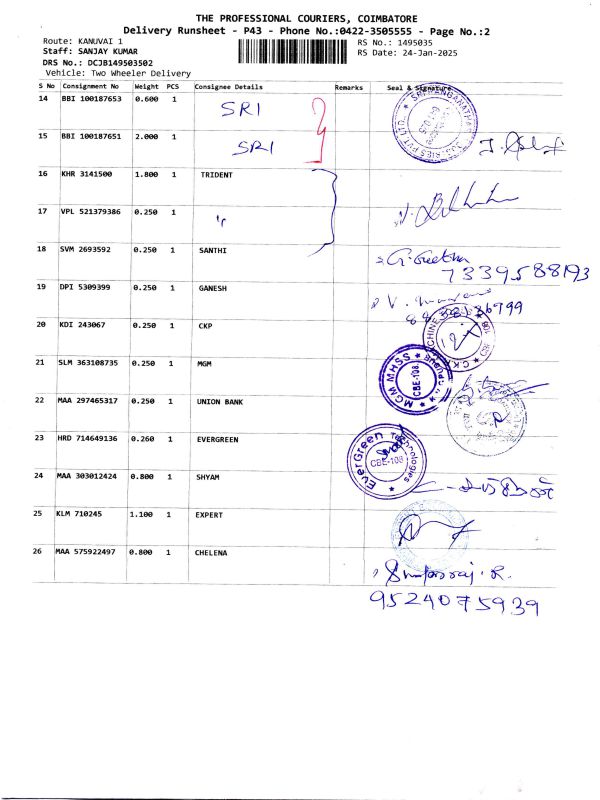 THE PROFESSIONAL COURIERS, COIMBATORE
Delivery Runsheet - P43 - Phone No.:0422-3505555 - Page No.:2
Route: KANUVAI 1
RS No.: 1495035
Staff: SANJAY KUMAR
RS Date: 24-Jan-2025
DRS No.: DCJB149503502
Vehicle: Two Wheeler Delivery
S No Consignment No Weight PCS Consignee Details Remarks Seal & Signature
14 BBI 100187653 0.600 1 SRI
15 BBI 100187651 2.000 1 SRI
16 KHR 3141500 1.800 1 TRIDENT
17 VPL 521379386 0.250 1 "
18 SVM 2693592 0.250 1 SANTHI G. Geetha
7339588193
19 DPI 5309399 0.250 1 GANESH
20 KDI 243067 0.250 1 CKP
21 SLM 363108735 0.250 1 MGM
MGM MHSS
CBE-108
22 MAA 297465317 0.250 1 UNION BANK
23 HRD 714649136 0.260 1 EVERGREEN
EverGreen Technologies
CBE-108
24 MAA 303012424 0.800 1 SHYAM
25 KLM 710245 1.100 1 EXPERT
26 MAA 575922497 0.800 1 CHELENA
9524075939